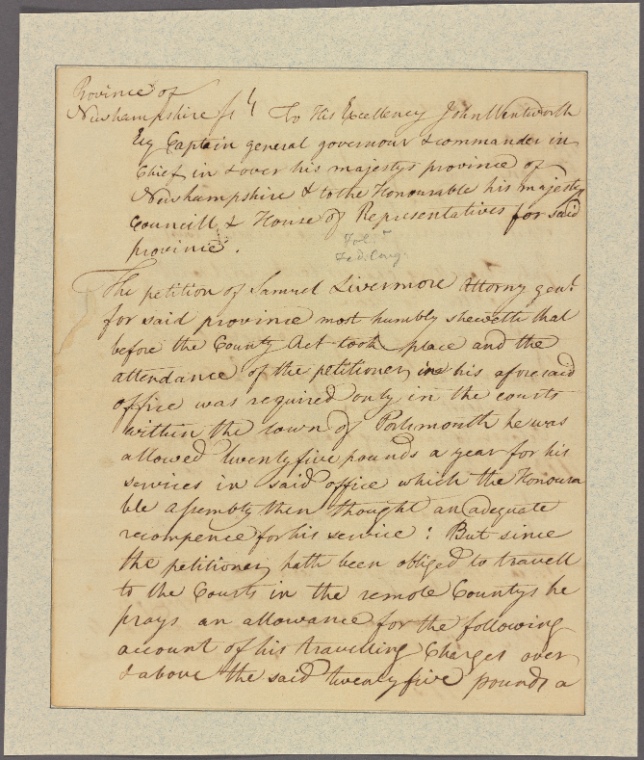 Province of
Newhampshire ss To His Excellency John Wentworth
Esq Captain general governour & commander in
Chief in & over his majestys province of
Newhampshire & to the Honourable his majestys
Councill & House of Representatives for said
province.
Fed. Cong.
The petition of Samuel Livermore Attorny genl.
for said province most humbly sheweth that
before the County Act took place and the
attendance of the petitioner in his aforesaid
office was required only in the courts
within the town of Portsmouth he was
allowed twenty five pounds a year for his
services in said office which the Honoura
ble assembly then thought an adequate
recompence for his service : But since
the petitioner hath been obliged to travell
to the Courts in the remote Countys he
prays an allowance for the following
account of his travelling Charges over
& above the said twenty five pounds a